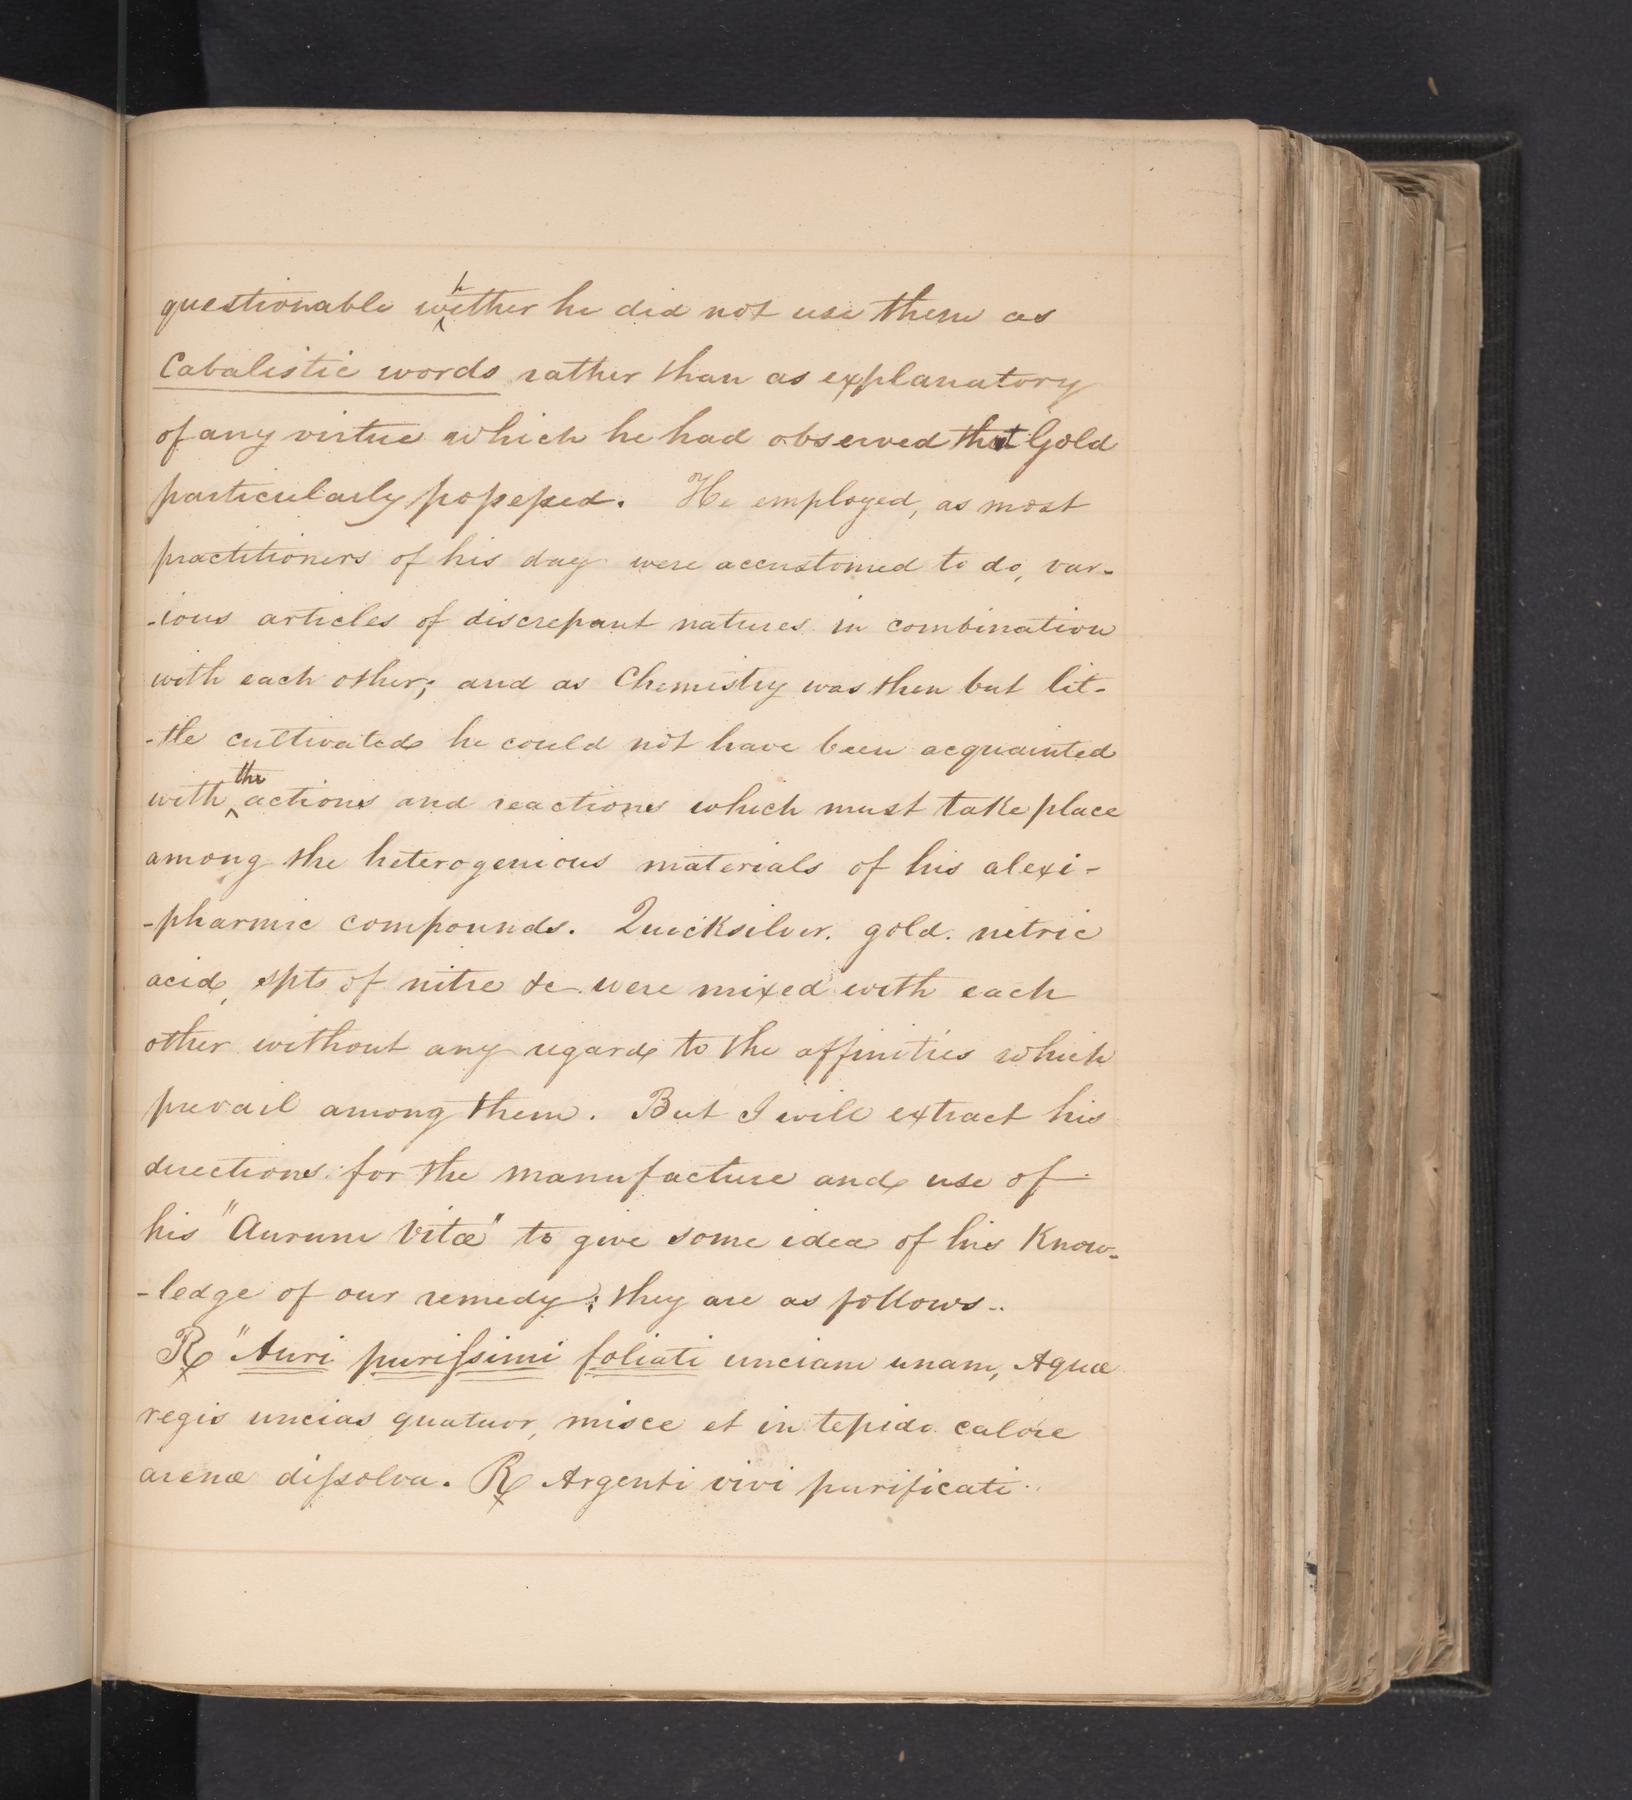 questionable whether he did not use them as
Cabalistic words rather than as explanatory
of any virtue which he had observed that Gold
particularly poſseſsed. He employed, as most
practitioners of his day were accustomed to do, var-
-ious articles of discrepant natures in combination
with each other; and as Chemistry was then but lit-
-tle cultivated he could not have been acquainted
with the actions and reactions which must take place
among the heterogenious materials of his alexi-
-pharmic compounds. Quicksilver. gold. nitric
acid, spts of nitre &c were mixed with each
other without any regard to the affinities which
prevail among them. But I will extract his
directions for the manufacture and use of
his "Aurum Vitæ" to give some idea of his Know-
-ledge of our remedy; they are as follows..
℞ "Auri puriſsimi foliati unciam unam, Aquæ
regis uncias quatuor, misce et in tepido calore
arenæ diſsolva. ℞ Argenti vivi purificati